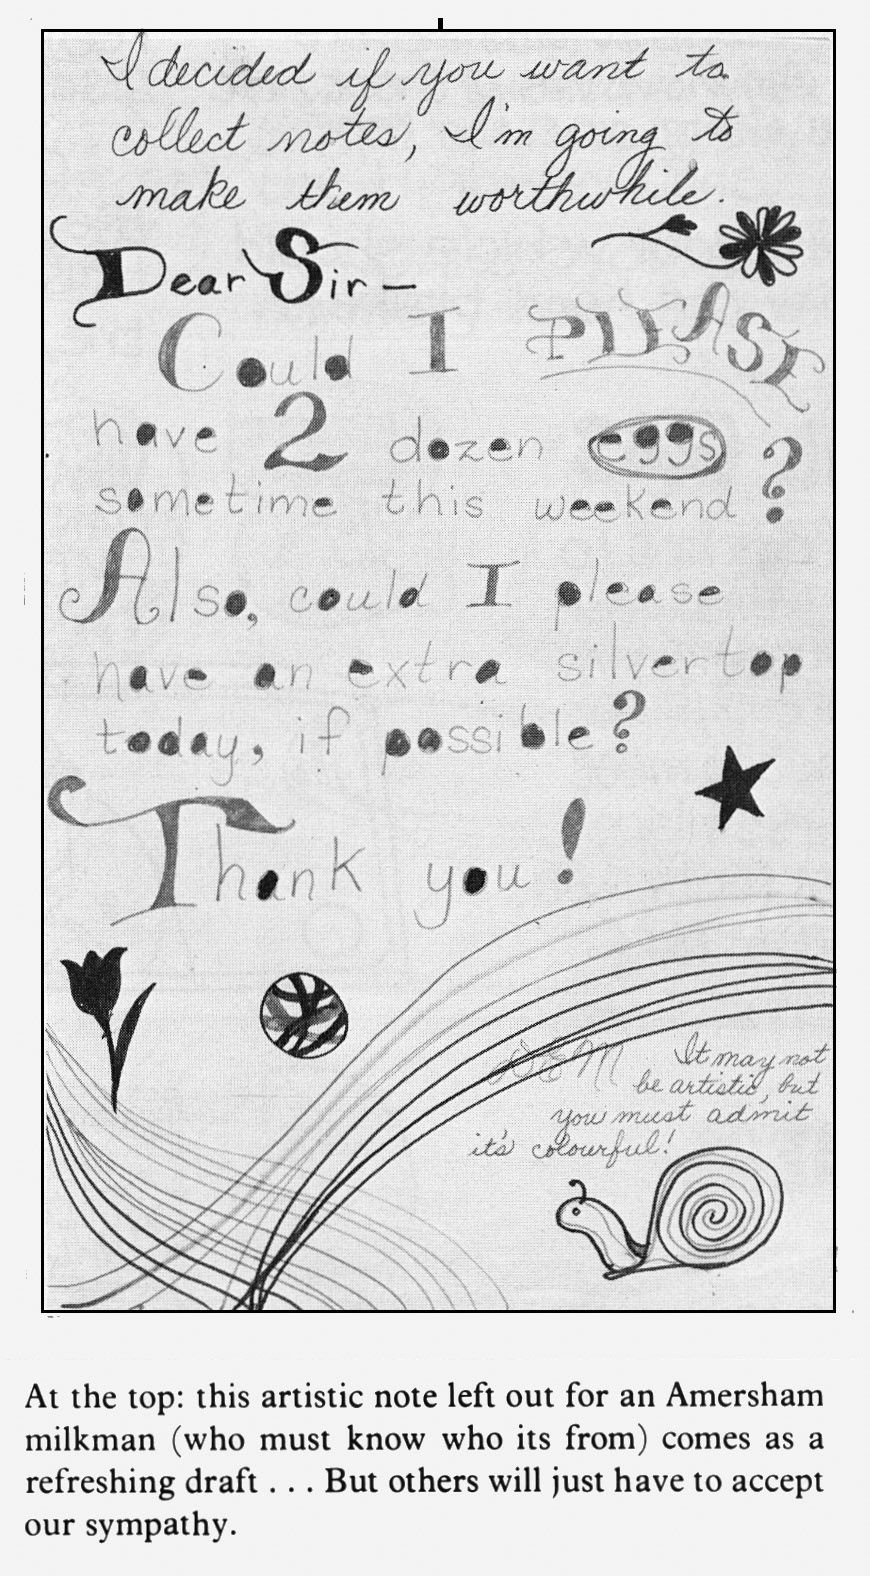 I decided if you want to
collect notes, I'm going to
make them worthwhile.
Dear Sir —
Could I PLEASE
have 2 dozen eggs ?
sometime this weekend
Also, could I please
have an extra silvertop
today, if possible?
Thank you!
It may not
be artistic, but
you must admit
it's colourful!
At the top: this artistic note left out for an Amersham
milkman (who must know who its from) comes as a
refreshing draft . . . But others will just have to accept
our sympathy.